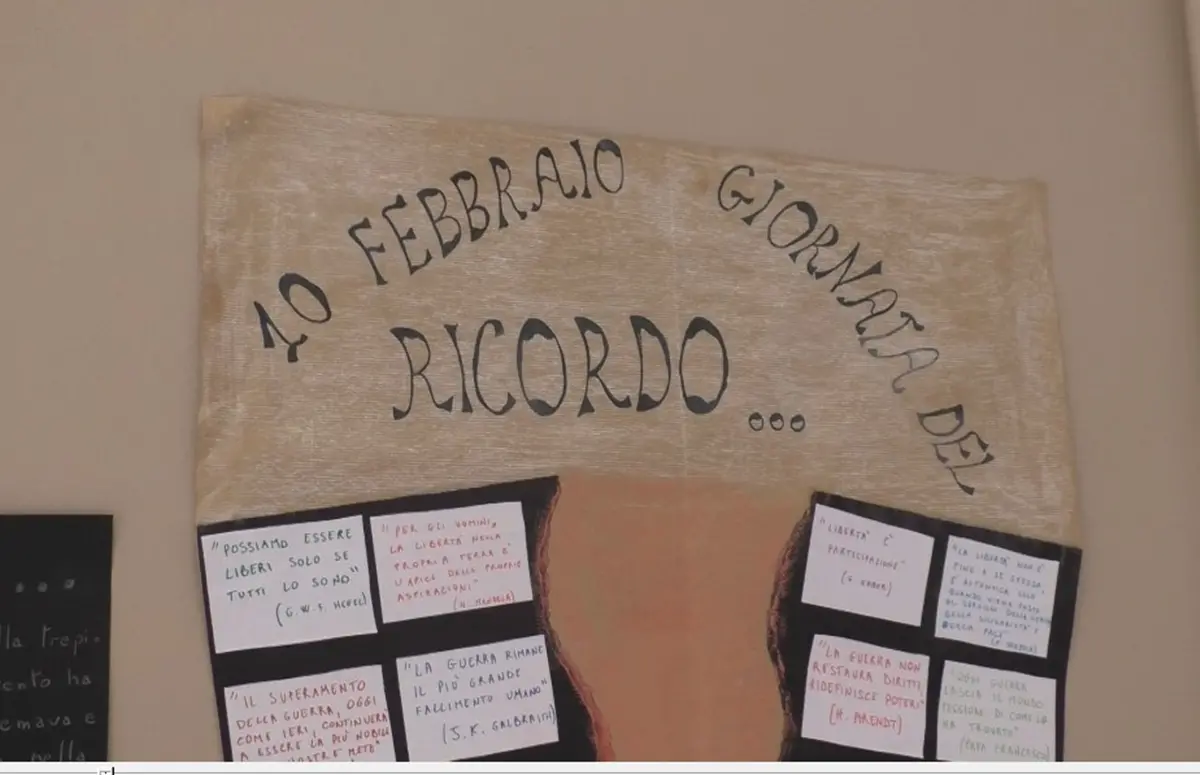 10 FEBBRAIO GIORNATA DEL
RICORDO...
"POSSIAMO ESSERE
LIBERI SOLO SE
TUTTI LO SONO"
(G.W.F. HEGEL)
"PER GLI UOMINI,
LA LIBERTÀ NELLA
PROPRIA TERRA È
L'APICE DELLE PROPRIE
ASPIRAZIONI"
(N. MANDELA)
"LIBERTA' E'
PARTECIPAZIONE"
(G. GABER)
"LA LIBERTÀ NON È
FINE A SE STESSA
È AUTENTICA SOLO
QUANDO VIENE POSTA
AL SERVIZIO DELLA
DELLA SOLIDARIETÀ E
DELLA PACE"
"IL SUPERAMENTO
DELLA GUERRA, OGGI
COME IERI, CONTINUERÀ
A ESSERE LA PIÙ NOBILE
METE"
"LA GUERRA RIMANE
IL PIÙ GRANDE
FALLIMENTO UMANO"
(J.K. GALBRAITH)
"LA GUERRA NON
RESTAURA DIRITTI,
RIDEFINISCE POTERI"
(H. ARENDT)
"OGNI GUERRA
LASCIA IL MONDO
PEGGIORE DI COME LO
HA TROVATO"
(PAPA FRANCESCO)
...
lla trepi.
ento ha
emava e
nella